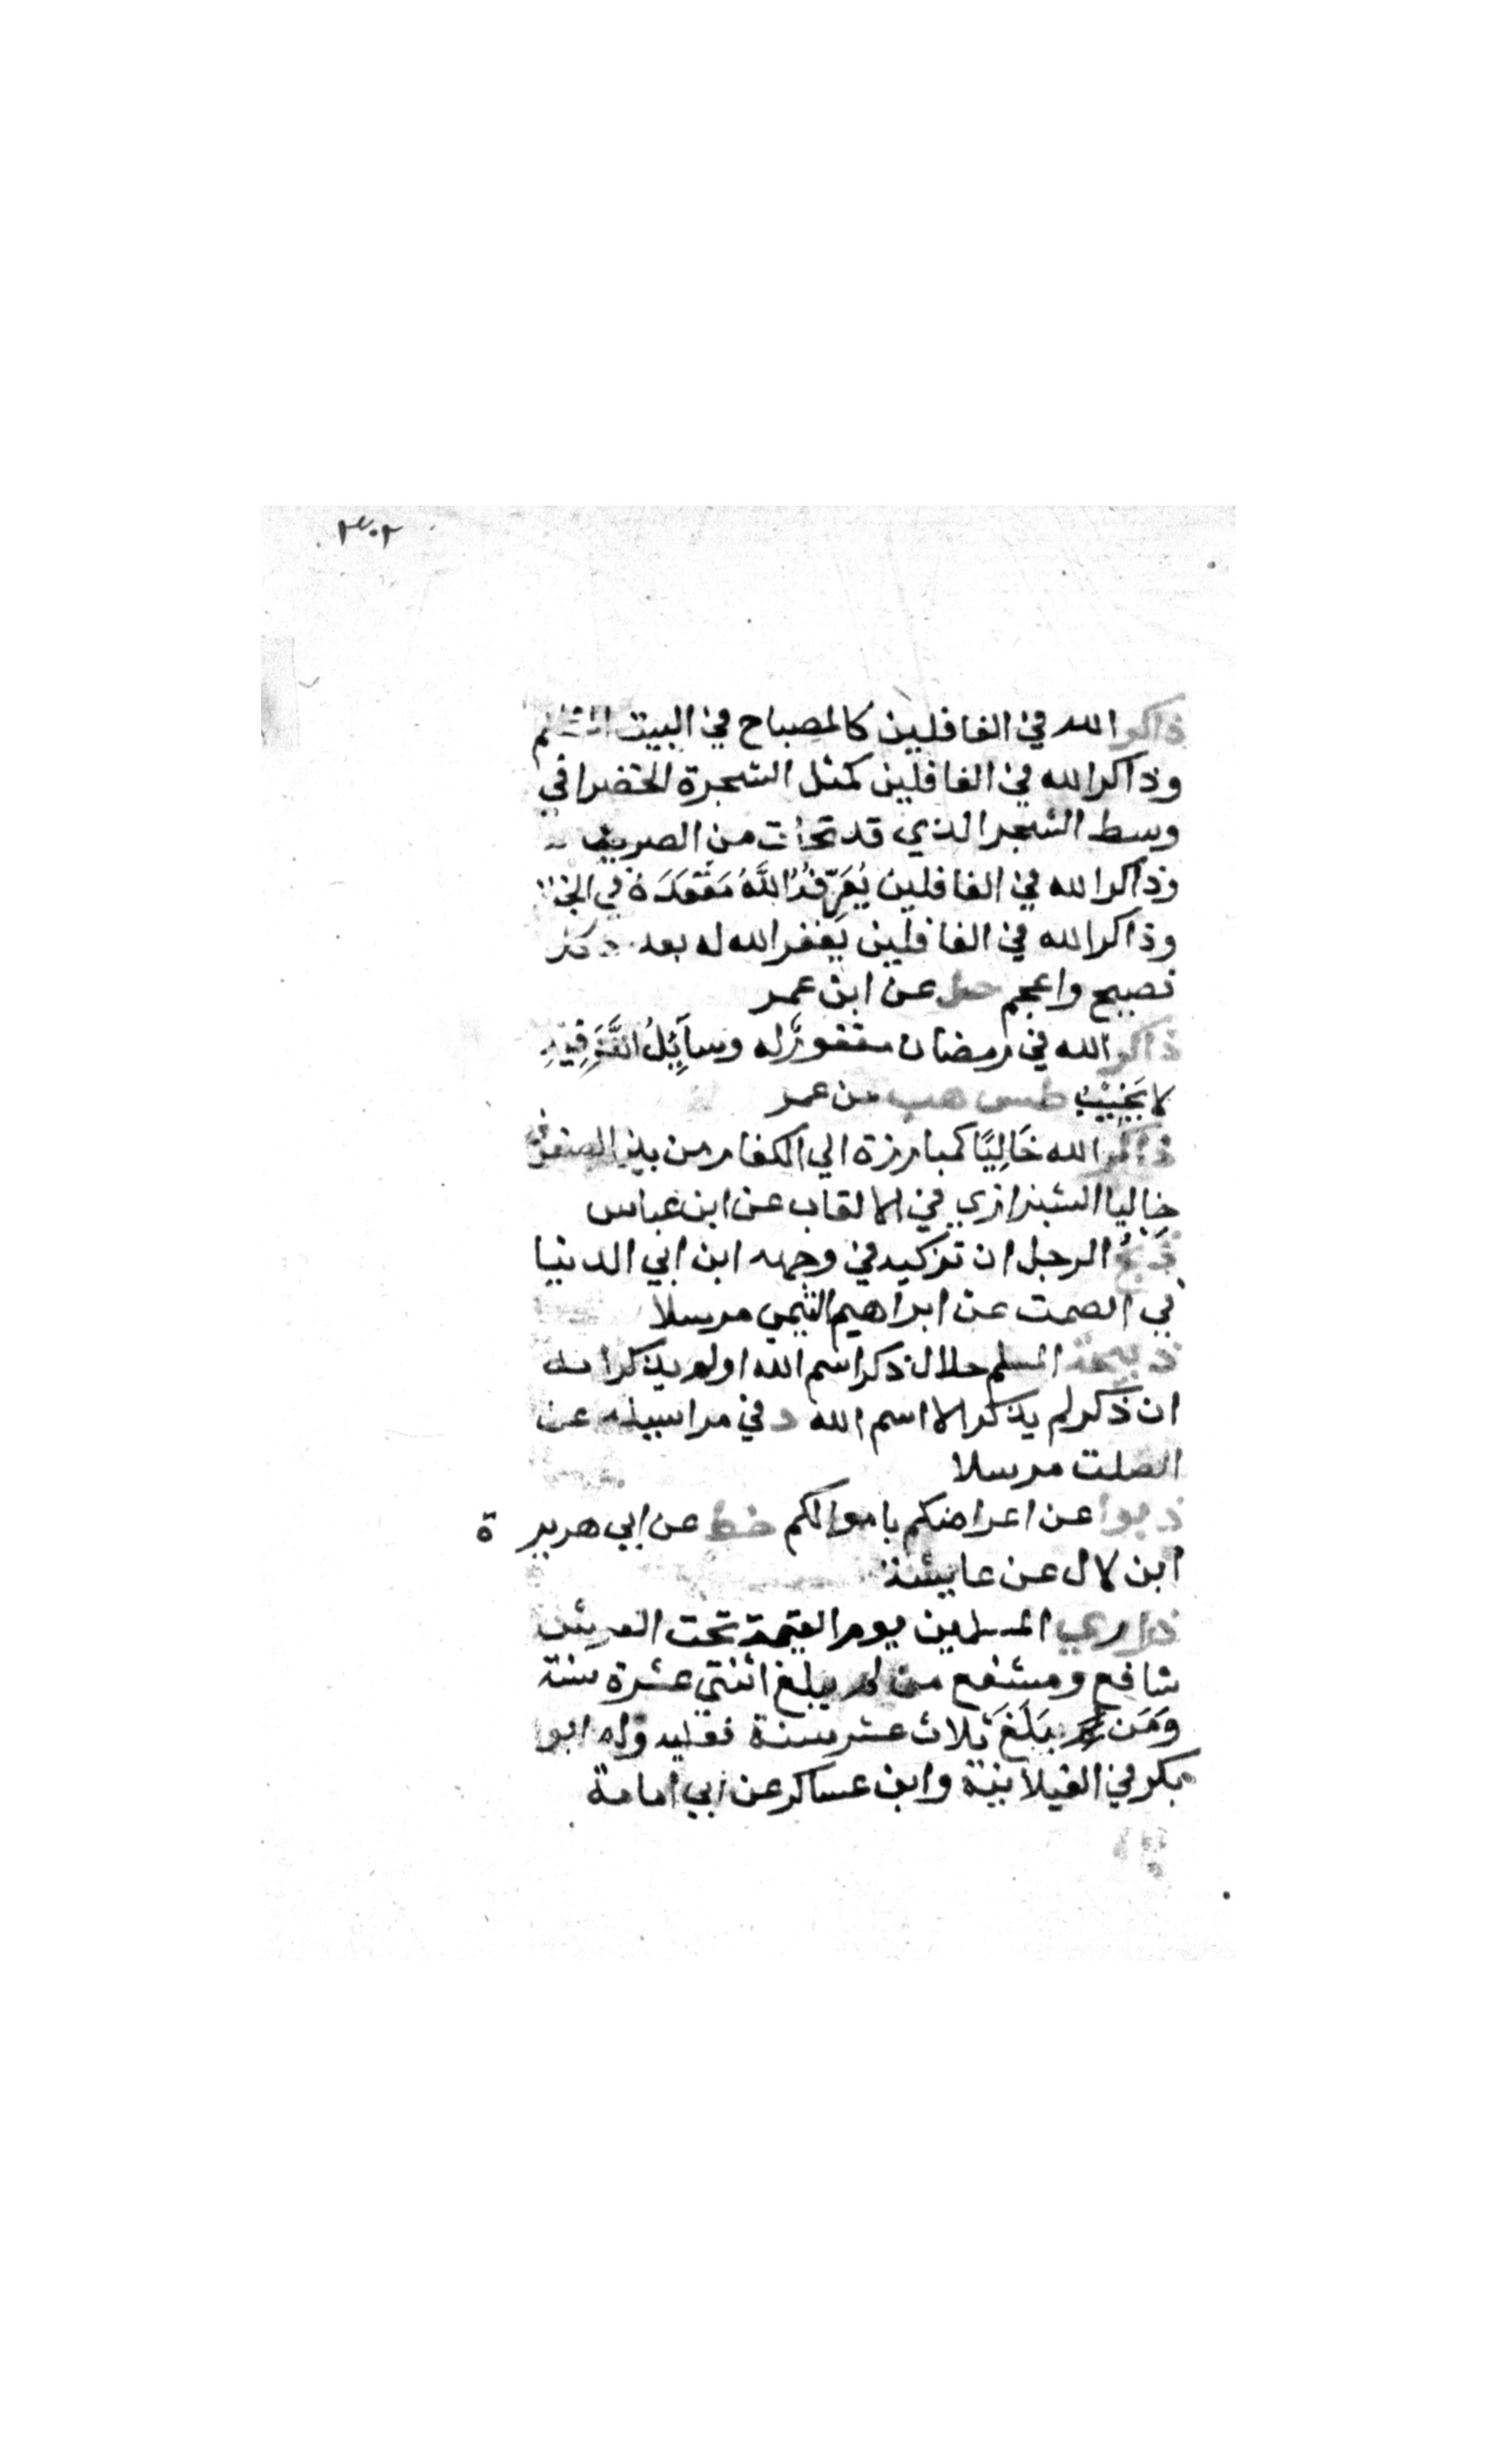 ٣٠٢
ذاكر الله في الغافلين كالمصباح في البيت المظلم
وذاكر الله في الغافلين كمثل الشجرة الخضرا في
وسط الشجر الذي قد تحات من الصريف
وذاكر الله في الغافلين يُعَرِّفُهُ اللَّهُ مَقْعَدَهُ في الجنة
وذاكر الله في الغافلين يغفر الله له بعدد كل
فصيح واعجم حل عن ابن عمر
ذاكر الله في رمضان مغفورٌ له وسَآئِلُ اللَّهَ فيه
لا يَخيبُ طس هب عن عمر
ذاكر الله خَالِيًا كمبارزة الي الكفار من بين الصفوف
خاليا الشيرازي في الالقاب عن ابن عباس
ذَبْحُ الرجل ان تزكيه في وجهه ابن ابي الدنيا
في الصمت عن ابراهيم التيمي مرسلا
ذبيحة المسلم حلال ذكر اسم الله اولم يذكر انه
ان ذكر لم يذكر الا اسم الله د في مراسيله عن
الصلت مرسلا
ذبوا عن اعراضكم باموالكم خط عن ابي هريرة
ابن لال عن عايشة
ذراري المسلمين يوم القيمة تحت العرش
شافع ومشفع من لم يبلغ اثنتي عشرة سنة
وَمَن بَلَغَ ثلاث عشر سنة فعليه وله ابو
بكر في الغيلانية وابن عساكر عن ابي امامة